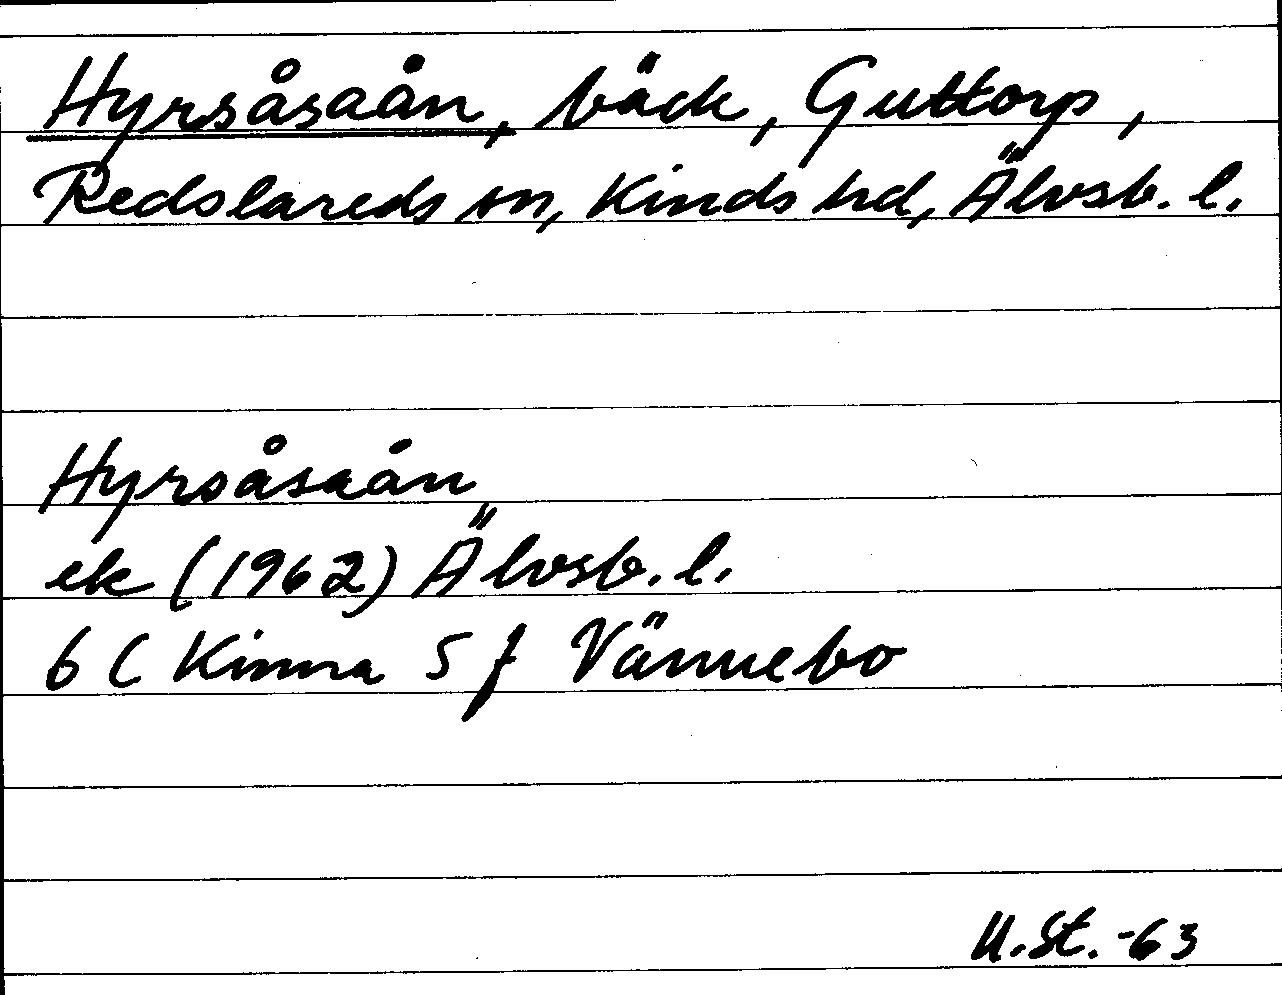 Hyrsåsaån, bäck, Guttorp,
Redslareds sn, Kinds hd, Älvsb. l.
Hyrsåsaån
ek (1962) Älvsb. l.
6 C Kinna 5 f Vännebo
U.St. -63